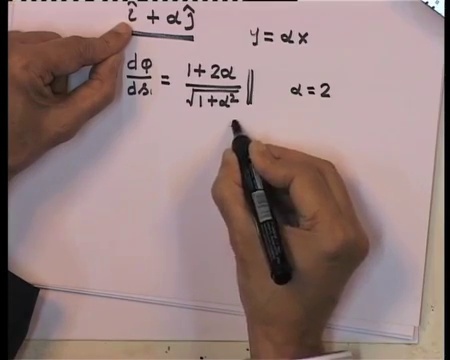 î + αĵ
y = αx
dφ/ds₁ = (1 + 2α)/√(1 + α²)
α = 2